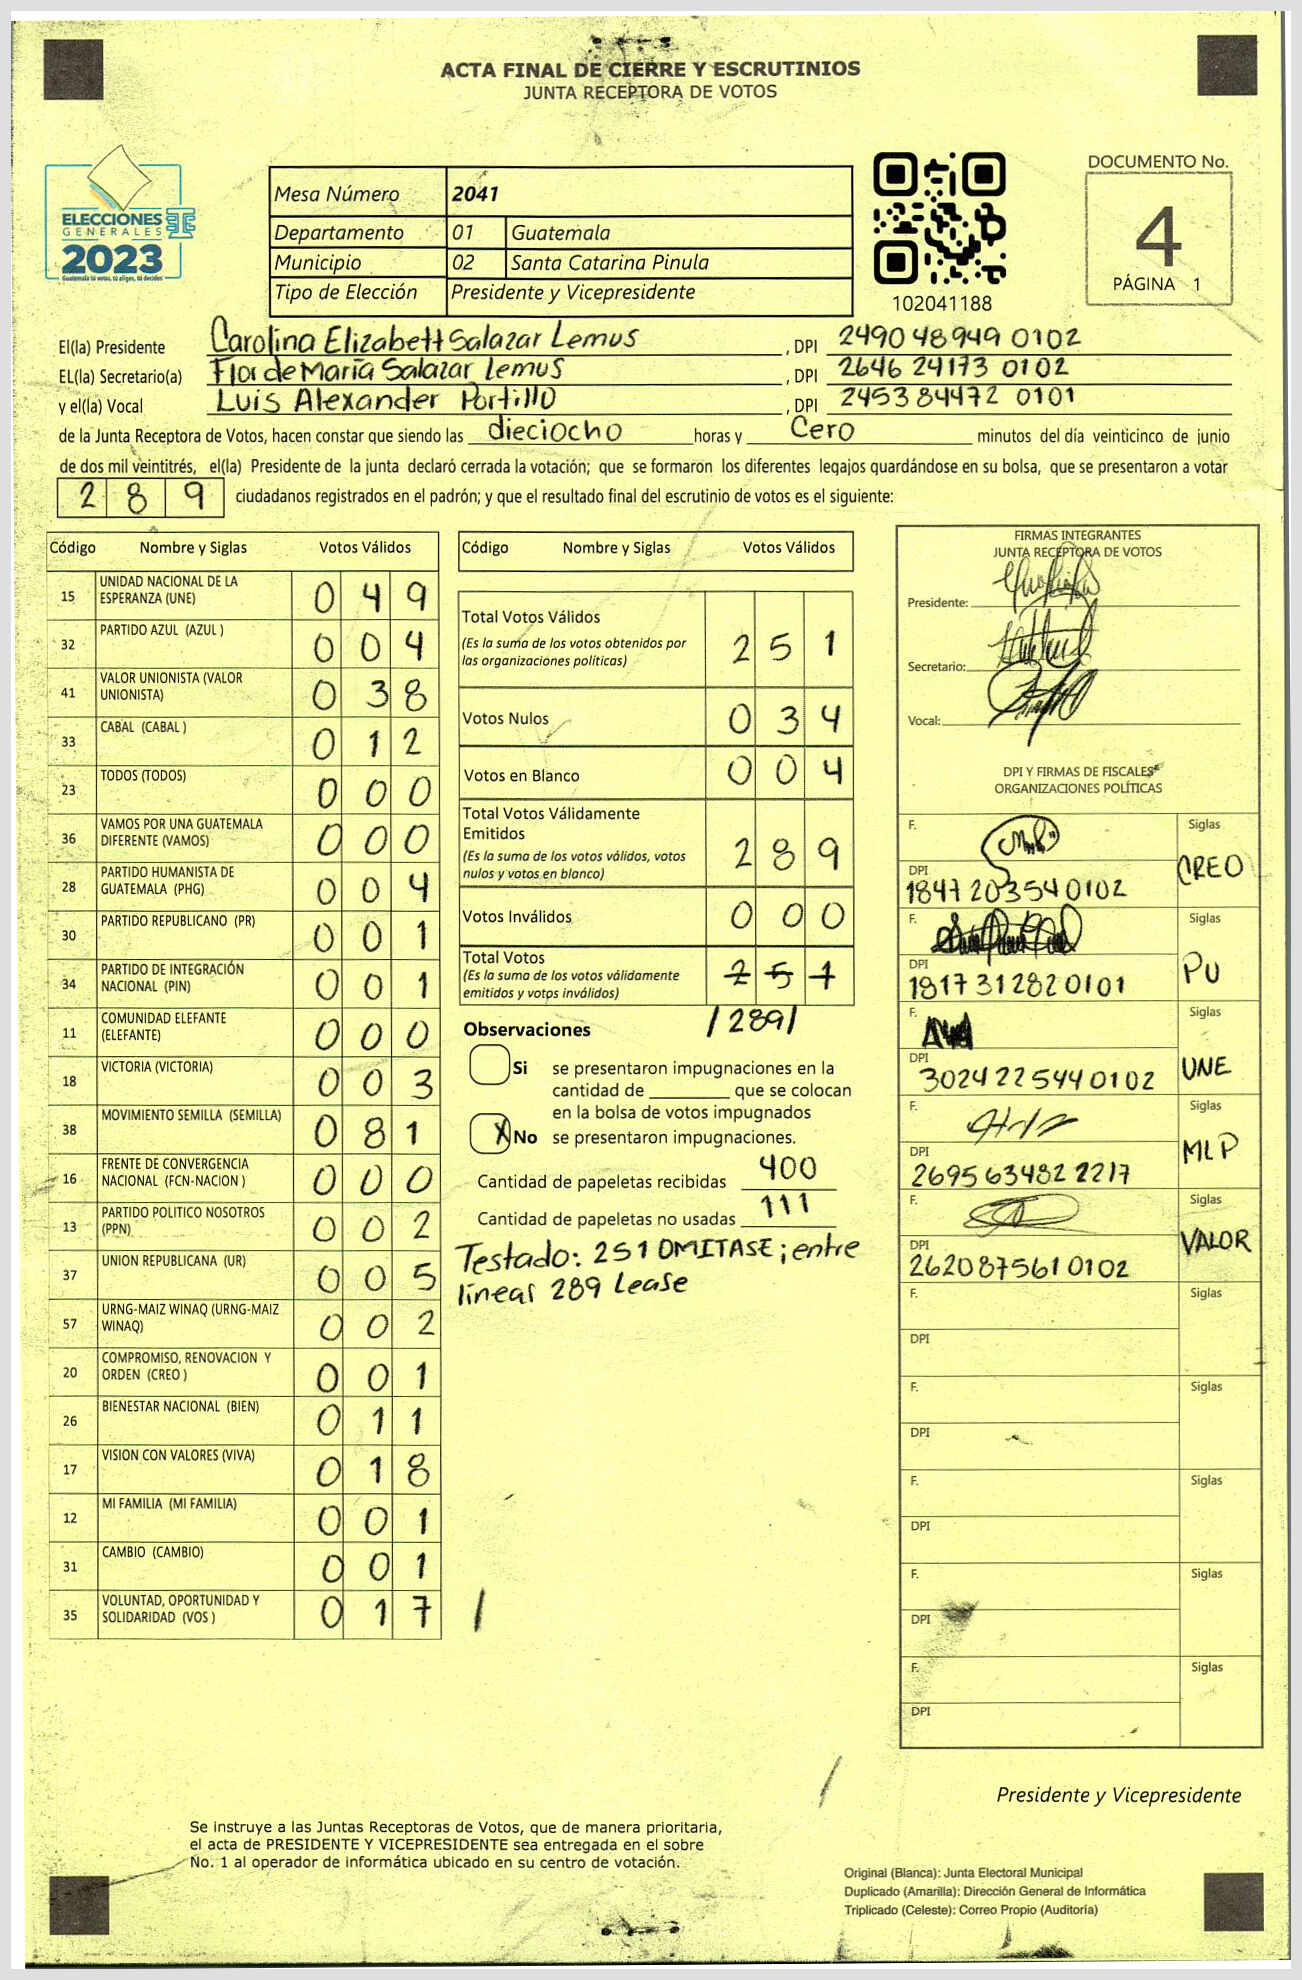 ACTA FINAL DE CIERRE Y ESCRUTINIOS
JUNTA RECEPTORA DE VOTOS
ELECCIONES
GENERALES
2023
Guatemala tú votas, tú eliges, tú decides
Mesa Número 2041
Departamento 01 Guatemala
Municipio 02 Santa Catarina Pinula
Tipo de Elección Presidente y Vicepresidente
102041188
DOCUMENTO No.
4
PÁGINA 1
El(la) Presidente Carolina Elizabett Salazar Lemus , DPI 2490 48949 0102
EL(la) Secretario(a) Flor de María Salazar Lemus , DPI 2646 24173 0102
y el(la) Vocal Luis Alexander Portillo , DPI 2453 84472 0101
de la Junta Receptora de Votos, hacen constar que siendo las dieciocho horas y Cero minutos del día veinticinco de junio
de dos mil veintitrés, el(la) Presidente de la junta declaró cerrada la votación; que se formaron los diferentes legajos guardándose en su bolsa, que se presentaron a votar
2 8 9 ciudadanos registrados en el padrón; y que el resultado final del escrutinio de votos es el siguiente:
Código Nombre y Siglas Votos Válidos
15 UNIDAD NACIONAL DE LA ESPERANZA (UNE) 0 4 9
32 PARTIDO AZUL (AZUL ) 0 0 4
41 VALOR UNIONISTA (VALOR UNIONISTA) 0 3 8
33 CABAL (CABAL ) 0 1 2
23 TODOS (TODOS) 0 0 0
36 VAMOS POR UNA GUATEMALA DIFERENTE (VAMOS) 0 0 0
28 PARTIDO HUMANISTA DE GUATEMALA (PHG) 0 0 4
30 PARTIDO REPUBLICANO (PR) 0 0 1
34 PARTIDO DE INTEGRACIÓN NACIONAL (PIN) 0 0 1
11 COMUNIDAD ELEFANTE (ELEFANTE) 0 0 0
18 VICTORIA (VICTORIA) 0 0 3
38 MOVIMIENTO SEMILLA (SEMILLA) 0 8 1
16 FRENTE DE CONVERGENCIA NACIONAL (FCN-NACION ) 0 0 0
13 PARTIDO POLITICO NOSOTROS (PPN) 0 0 2
37 UNION REPUBLICANA (UR) 0 0 5
57 URNG-MAIZ WINAQ (URNG-MAIZ WINAQ) 0 0 2
20 COMPROMISO, RENOVACION Y ORDEN (CREO ) 0 0 1
26 BIENESTAR NACIONAL (BIEN) 0 1 1
17 VISION CON VALORES (VIVA) 0 1 8
12 MI FAMILIA (MI FAMILIA) 0 0 1
31 CAMBIO (CAMBIO) 0 0 1
35 VOLUNTAD, OPORTUNIDAD Y SOLIDARIDAD (VOS ) 0 1 7
Código Nombre y Siglas Votos Válidos
Total Votos Válidos
(Es la suma de los votos obtenidos por
las organizaciones políticas) 2 5 1
Votos Nulos 0 3 4
Votos en Blanco 0 0 4
Total Votos Válidamente
Emitidos
(Es la suma de los votos válidos, votos
nulos y votos en blanco) 2 8 9
Votos Inválidos 0 0 0
Total Votos
(Es la suma de los votos válidamente
emitidos y votos inválidos) 2 5 1
/289/
Observaciones
Si se presentaron impugnaciones en la
cantidad de ________ que se colocan
en la bolsa de votos impugnados
X No se presentaron impugnaciones.
Cantidad de papeletas recibidas 400
Cantidad de papeletas no usadas 111
Testado: 251 OMITASE; entre
lineas 289 Lease
FIRMAS INTEGRANTES
JUNTA RECEPTORA DE VOTOS
Presidente:
Secretario:
Vocal:
DPI Y FIRMAS DE FISCALES
ORGANIZACIONES POLÍTICAS
F. Siglas
DPI 1847 20354 0102 CREO
F. Siglas
DPI 1817 31282 0101 PU
F. Siglas
DPI 3024 22544 0102 UNE
F. Siglas
DPI 2695 63482 2217 MLP
F. Siglas
DPI 2620 87561 0102 VALOR
F. Siglas
DPI
F. Siglas
DPI
F. Siglas
DPI
F. Siglas
DPI
F. Siglas
DPI
Presidente y Vicepresidente
Se instruye a las Juntas Receptoras de Votos, que de manera prioritaria,
el acta de PRESIDENTE Y VICEPRESIDENTE sea entregada en el sobre
No. 1 al operador de informática ubicado en su centro de votación.
Original (Blanca): Junta Electoral Municipal
Duplicado (Amarilla): Dirección General de Informática
Triplicado (Celeste): Correo Propio (Auditoría)